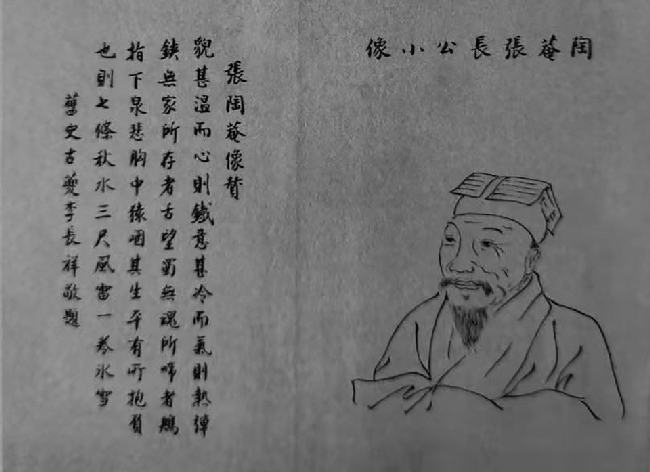 陶菴張長公小像
張陶菴像贊
貌甚溫而心則鐵意甚冷而氣則熱彈
鋏無家所存者舌望蜀無魂所啼者鵑
指下泉悲胸中猿咽其生平有所抱負
也則七條秋水三尺風雷一卷冰雪
孽史古夔李長祥敬題